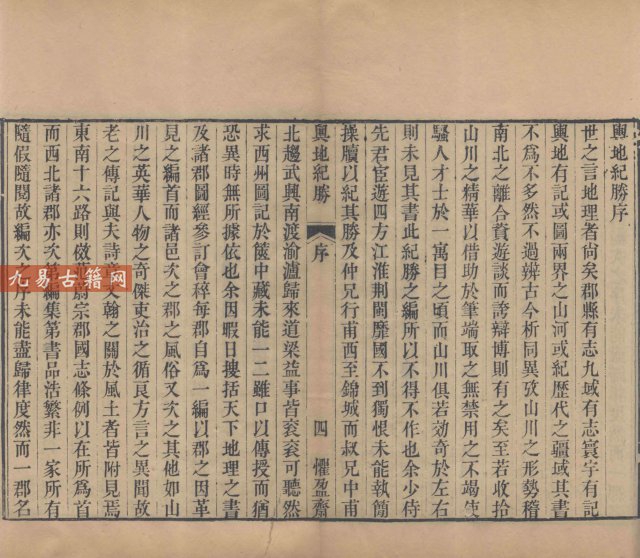 輿地紀勝序
世之言地理者尙矣郡縣有志九域有志寰宇有記
輿地有記或圖兩界之山河或紀歷代之疆域其書
不爲不多然不過辨古今析同異攷山川之形勢稽
南北之離合資遊談而誇辯博則有之矣至若收拾
山川之精華以借助於筆端取之無禁用之不竭使
騷人才士於一寓目之頃而山川俱若効奇於左右
則未見其書此紀勝之編所以不得不作也余少侍
先君宦遊四方江淮荆閩靡國不到獨恨未能執簡
操牘以紀其勝及仲兄行甫西至錦城而叔兄中甫
輿地紀勝 序 四 懼盈齋
北趨武興南渡渝瀘歸來道梁益事皆袞袞可聽然
求西州圖記於篋中藏未能一二雖口以傳授而猶
恐異時無所據依也余因暇日搜括天下地理之書
及諸郡圖經參訂會稡每郡自爲一編以郡之因革
見之編首而諸邑次之郡之風俗又次之其他如山
川之英華人物之奇傑吏治之循良方言之異聞故
老之傳記與夫詩文翰之關於風土者皆附見焉
東南十六路則倣蔚宗郡國志條例以在所爲首
而西北諸郡亦次第編集第書品浩繁非一家所有
隨假隨閱故編次之序未能盡歸律度然而一郡名
九易古籍网